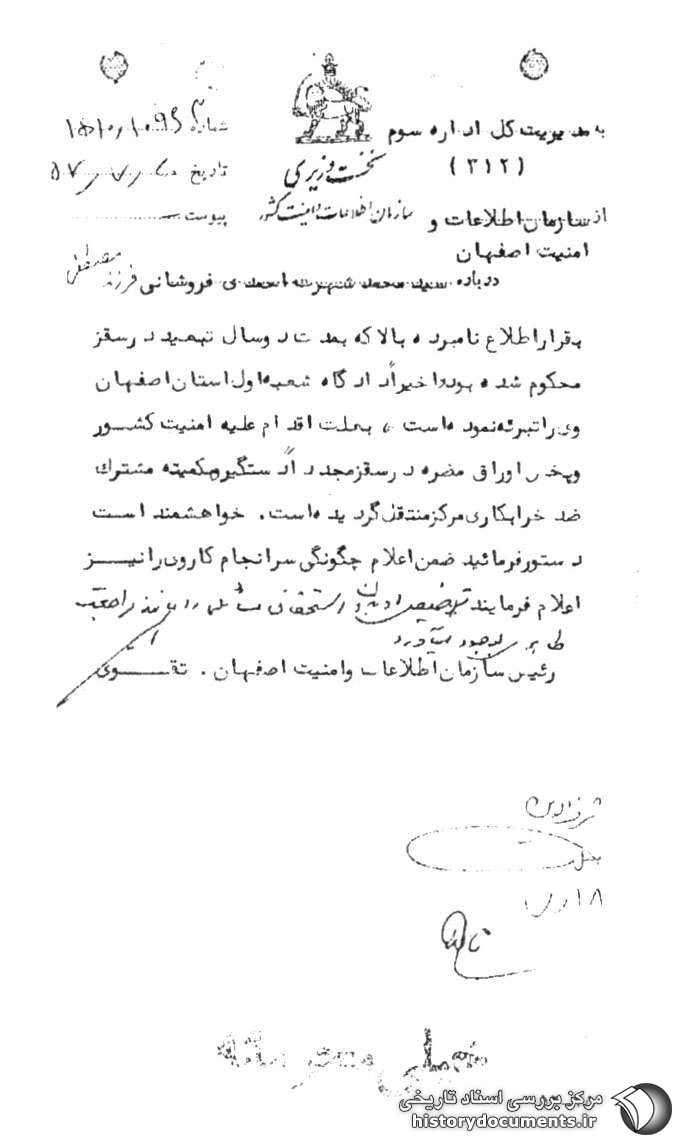 به مدیریت کل اداره سوم
(۳۱۲)
نخست وزیری
سازمان اطلاعات و امنیت کشور
شماره
تاریخ
پیوست
از سازمان اطلاعات و
امنیت اصفهان
درباره سید محمد احمدی فروشانی فرزند مصطفی
بقرار اطلاع نامبرده بالا که بمدت دو سال تبعید در سقز
محکوم شده بود و اخیراً دادگاه شعبه اول استان اصفهان
وی را تبرئه نموده است ، بعلت اقدام علیه امنیت کشور
و پخش اوراق مضره در سقز مجدداً دستگیر و بکمیته مشترک
ضد خرابکاری مرکز منتقل گردیده است . خواهشمند است
دستور فرمائید ضمن اعلام چگونگی سرانجام کار وی را نیز
اعلام فرمایند
رئیس سازمان اطلاعات و امنیت اصفهان . تقوی
خیلی محرمانه
مرکز بررسی اسناد تاریخی
historydocuments.ir